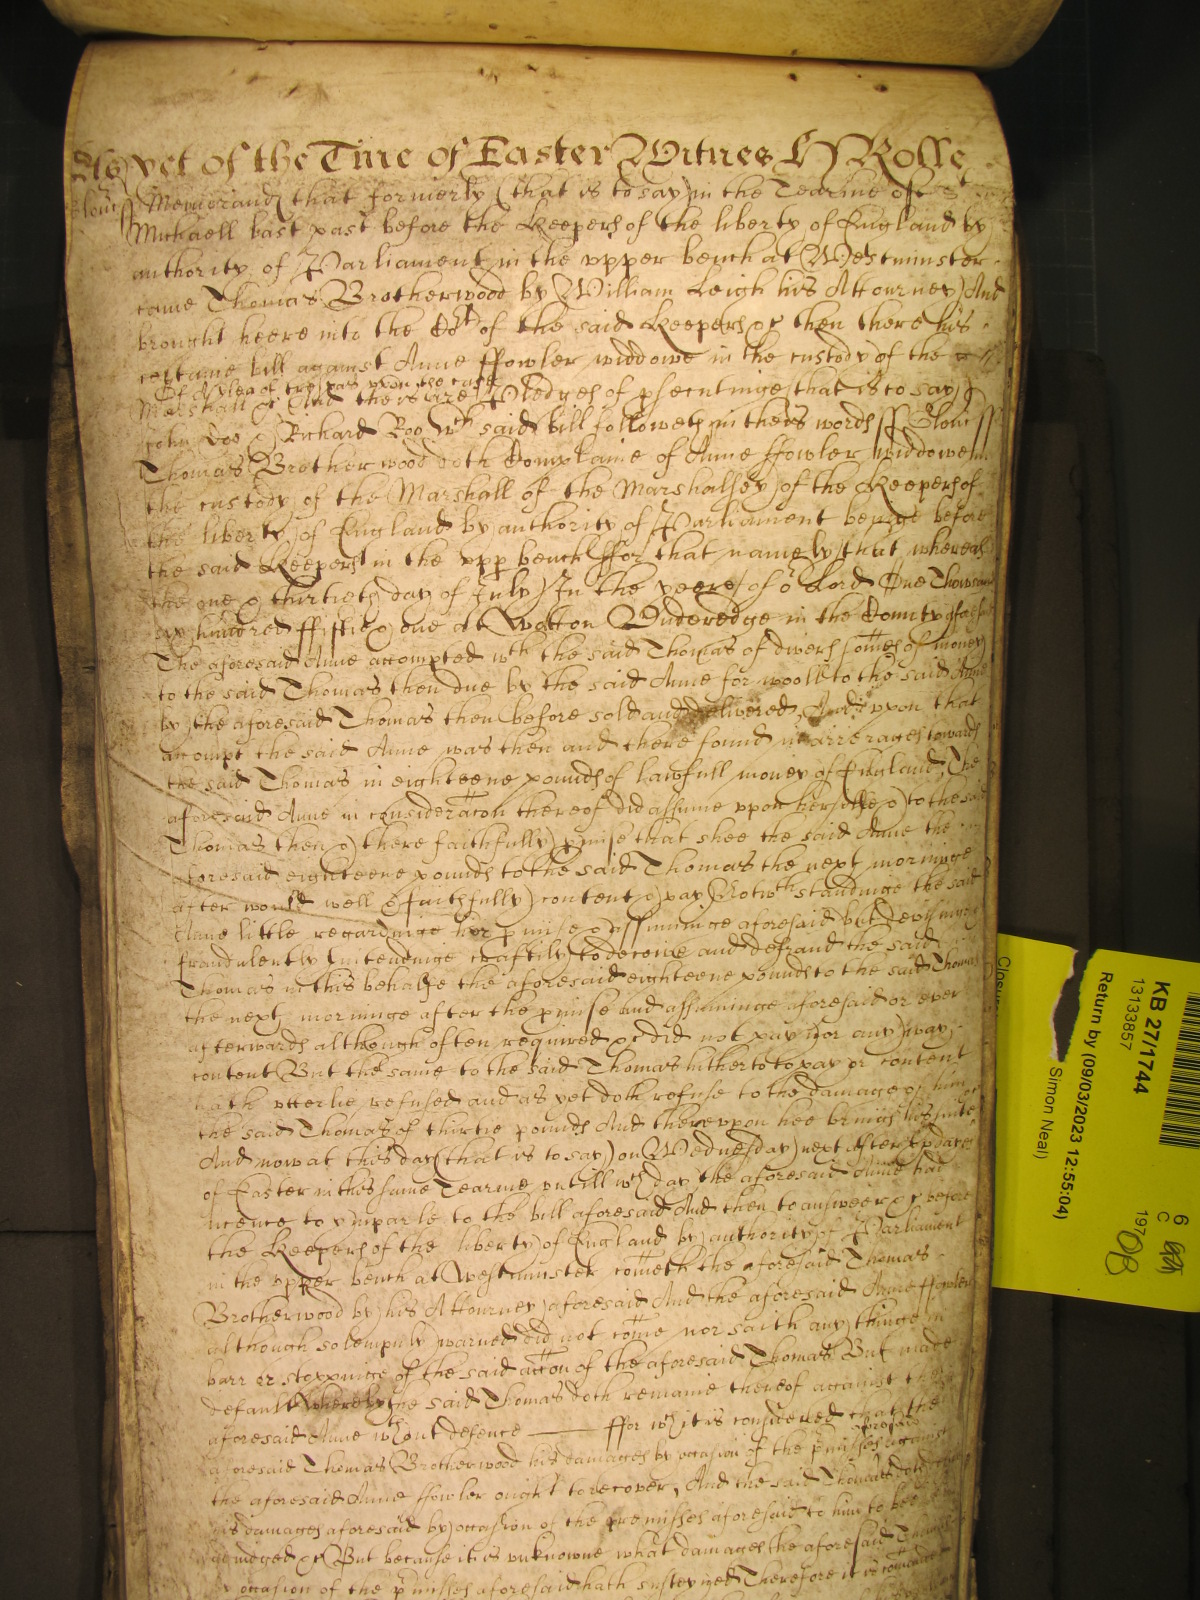 As yet of the Tme of Easter Witnes H Rolle
Glouc ss Memorand that formerly (that is to say) in the Tearme of St
Michaell last past before the Keepers of the liberty of England by
authority of Parliament in the upper bench at Westminster
came Thomas Brotherwood by William Leigh his Attourney And
brought heere into the Cort of the said Keepers &c then there his
certaine bill against Anne ffowler widdowe in the custody of the
Of A plea of trespas upon the case
Marshall &c And there are Pledges of psecutinge that is to say
John Doo & Richard Roo wch said bill followeth in theis words ss Glouc ss
Thomas Brotherwood doth Complaine of Anne ffowler widdowe in
the custody of the Marshall of the Marshalsey of the Keepers of
the liberty of England by authority of Parliament beinge before
the said Keepers in the upp bench ffor that namely that whereas
the one & thirtieth day of July In the yeere of or Lord One Thowsand
six hundred ffiftie & one at Wotton Underedge in the County aforesd
The aforesaid Anne accompted wth the said Thomas of divers somes of money
to the said Thomas then due by the said Anne for wooll to the said Anne
by the aforesaid Thomas then before sold and delivered And upon that
accompt the said Anne was then and there found in arrerages towards
the said Thomas in eighteene pounds of lawfull money of England The
aforesaid Anne in consideracon thereof did assume upon herselfe & to the said
Thomas then & there faithfully pmise that shee the said Anne the
aforesaid eighteene pounds to the said Thomas the next morninge
after would well & faithfully content & pay Notwthstandinge the said
Anne little regardinge her pmise & assuminge aforesaid but devisinge
fraudulently intendinge craftily to deceive and defraud the said
Thomas in this behalfe the aforesaid eighteene pounds to the said Thomas
the next morninge after the pmise and assuminge aforesaid or ever
afterwards although often required &c did not pay nor any way
content But the same to the said Thomas hitherto to pay or content
hath utterlie refused and as yet doth refuse to the damage of him
the said Thomas of thirtie pounds And thereupon hee brings his suite
And now at this day (that is to say) on Wednesday next after
of Easter in this same Tearme untill wch day the aforesaid Anne had
licence to imparle to the bill aforesaid And then to answeere &c before
the Keepers of the liberty of England by authority of Parliament
in the upper bench at Westminster cometh the aforesaid Thomas
Brotherwood by his Attourney aforesaid And the aforesaid Anne ffowler
although solempnly warned did not come nor saith any thinge in
barr or stoppinge of the said accon of the aforesaid Thomas But made
default Whereby the said Thomas doth remaine thereof against the
aforesaid Anne wthout defence ffor wch it is considered that the
aforesaid
aforesaid Thomas Brotherwood his damages by occasion of the pmisses against
the aforesaid Anne ffowler ought to recover, And the said Thomas
his damages aforesaid by occasion of the premisses aforesaid to him to bee
adiudged &c But because it is unknowne what damages the aforesaid Thomas
by occasion of the pmisses aforesaid hath susteyned Therefore it is
KB 27/1744
13133857
Return by (09/03/2023 12:55:04)
Simon Neal)
Closure
6
C
197